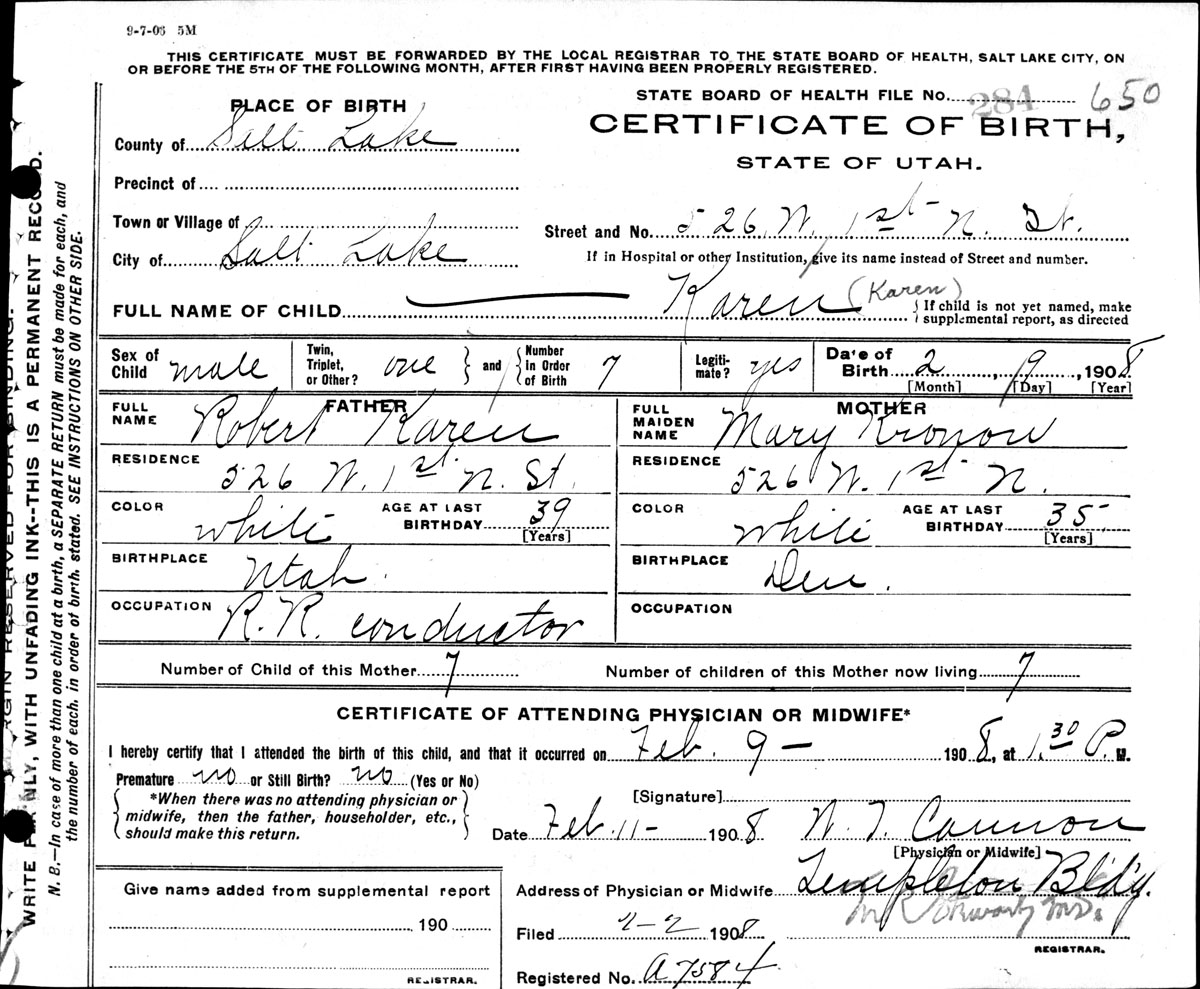 9-7-06 5M
THIS CERTIFICATE MUST BE FORWARDED BY THE LOCAL REGISTRAR TO THE STATE BOARD OF HEALTH, SALT LAKE CITY, ON
OR BEFORE THE 5TH OF THE FOLLOWING MONTH, AFTER FIRST HAVING BEEN PROPERLY REGISTERED.
STATE BOARD OF HEALTH FILE No. 284 650
PLACE OF BIRTH
CERTIFICATE OF BIRTH,
STATE OF UTAH.
County of Salt Lake
Precinct of
Town or Village of
City of Salt Lake
Street and No. 526 W. 1st N. St.
If in Hospital or other Institution, give its name instead of Street and number.
FULL NAME OF CHILD Karen (Karen)
If child is not yet named, make
supplemental report, as directed
Sex of Child male
Twin, Triplet, or Other? one and Number In Order of Birth 7
Legitimate? yes
Date of Birth 2 9, 1908
[Month] [Day] [Year]
FATHER
FULL NAME Robert Karen
RESIDENCE 526 W. 1st N. St.
COLOR white AGE AT LAST BIRTHDAY 39
[Years]
BIRTHPLACE Utah.
OCCUPATION R.R. conductor
MOTHER
FULL MAIDEN NAME Mary Kronow
RESIDENCE 526 W. 1st N.
COLOR white AGE AT LAST BIRTHDAY 35
[Years]
BIRTHPLACE Den.
OCCUPATION
Number of Child of this Mother 7
Number of children of this Mother now living 7
CERTIFICATE OF ATTENDING PHYSICIAN OR MIDWIFE*
I hereby certify that I attended the birth of this child, and that it occurred on Feb. 9 - 1908, at 1.30 P. M.
Premature no or Still Birth? no (Yes or No)
*When there was no attending physician or
midwife, then the father, householder, etc.,
should make this return.
[Signature]
Date Feb. 11- 1908 W. T. Cannon
[Physician or Midwife]
Address of Physician or Midwife Templeton Bldg.
Filed 2-2 1908
REGISTRAR.
Registered No. A7584
Give name added from supplemental report
190
REGISTRAR.
MARGIN RESERVED FOR BINDING.
WRITE PLAINLY, WITH UNFADING INK--THIS IS A PERMANENT RECORD.
N. B.—In case of more than one child at a birth, a SEPARATE RETURN must be made for each, and
the number of each, in order of birth, stated. SEE INSTRUCTIONS ON OTHER SIDE.